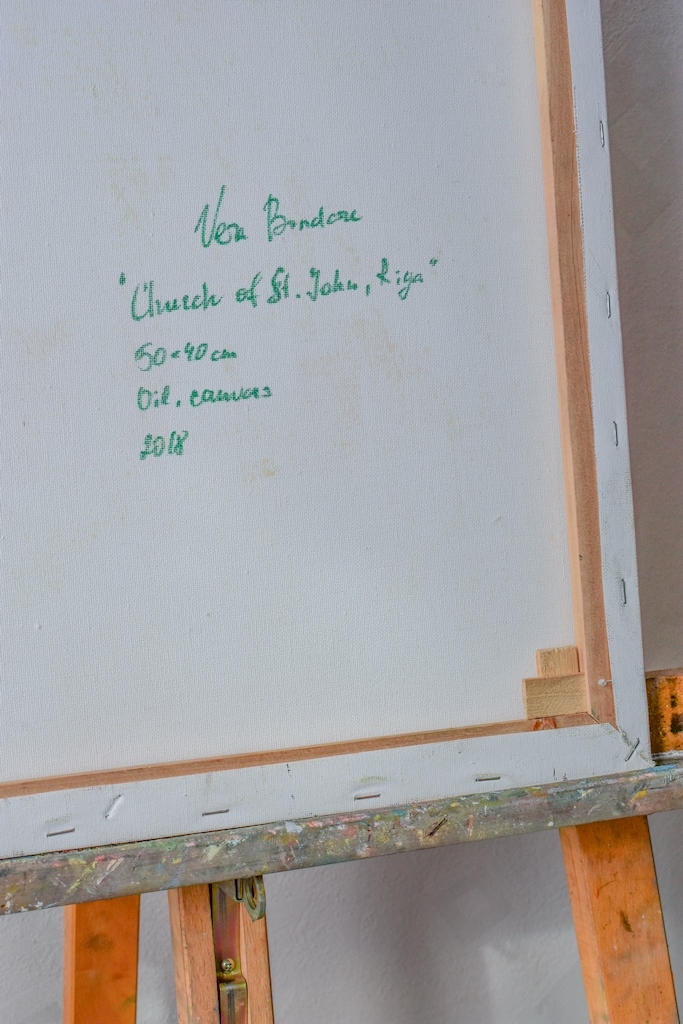 Vera Bondare
"Church of St. John, Riga"
50×40 cm
Oil, canvas
2018